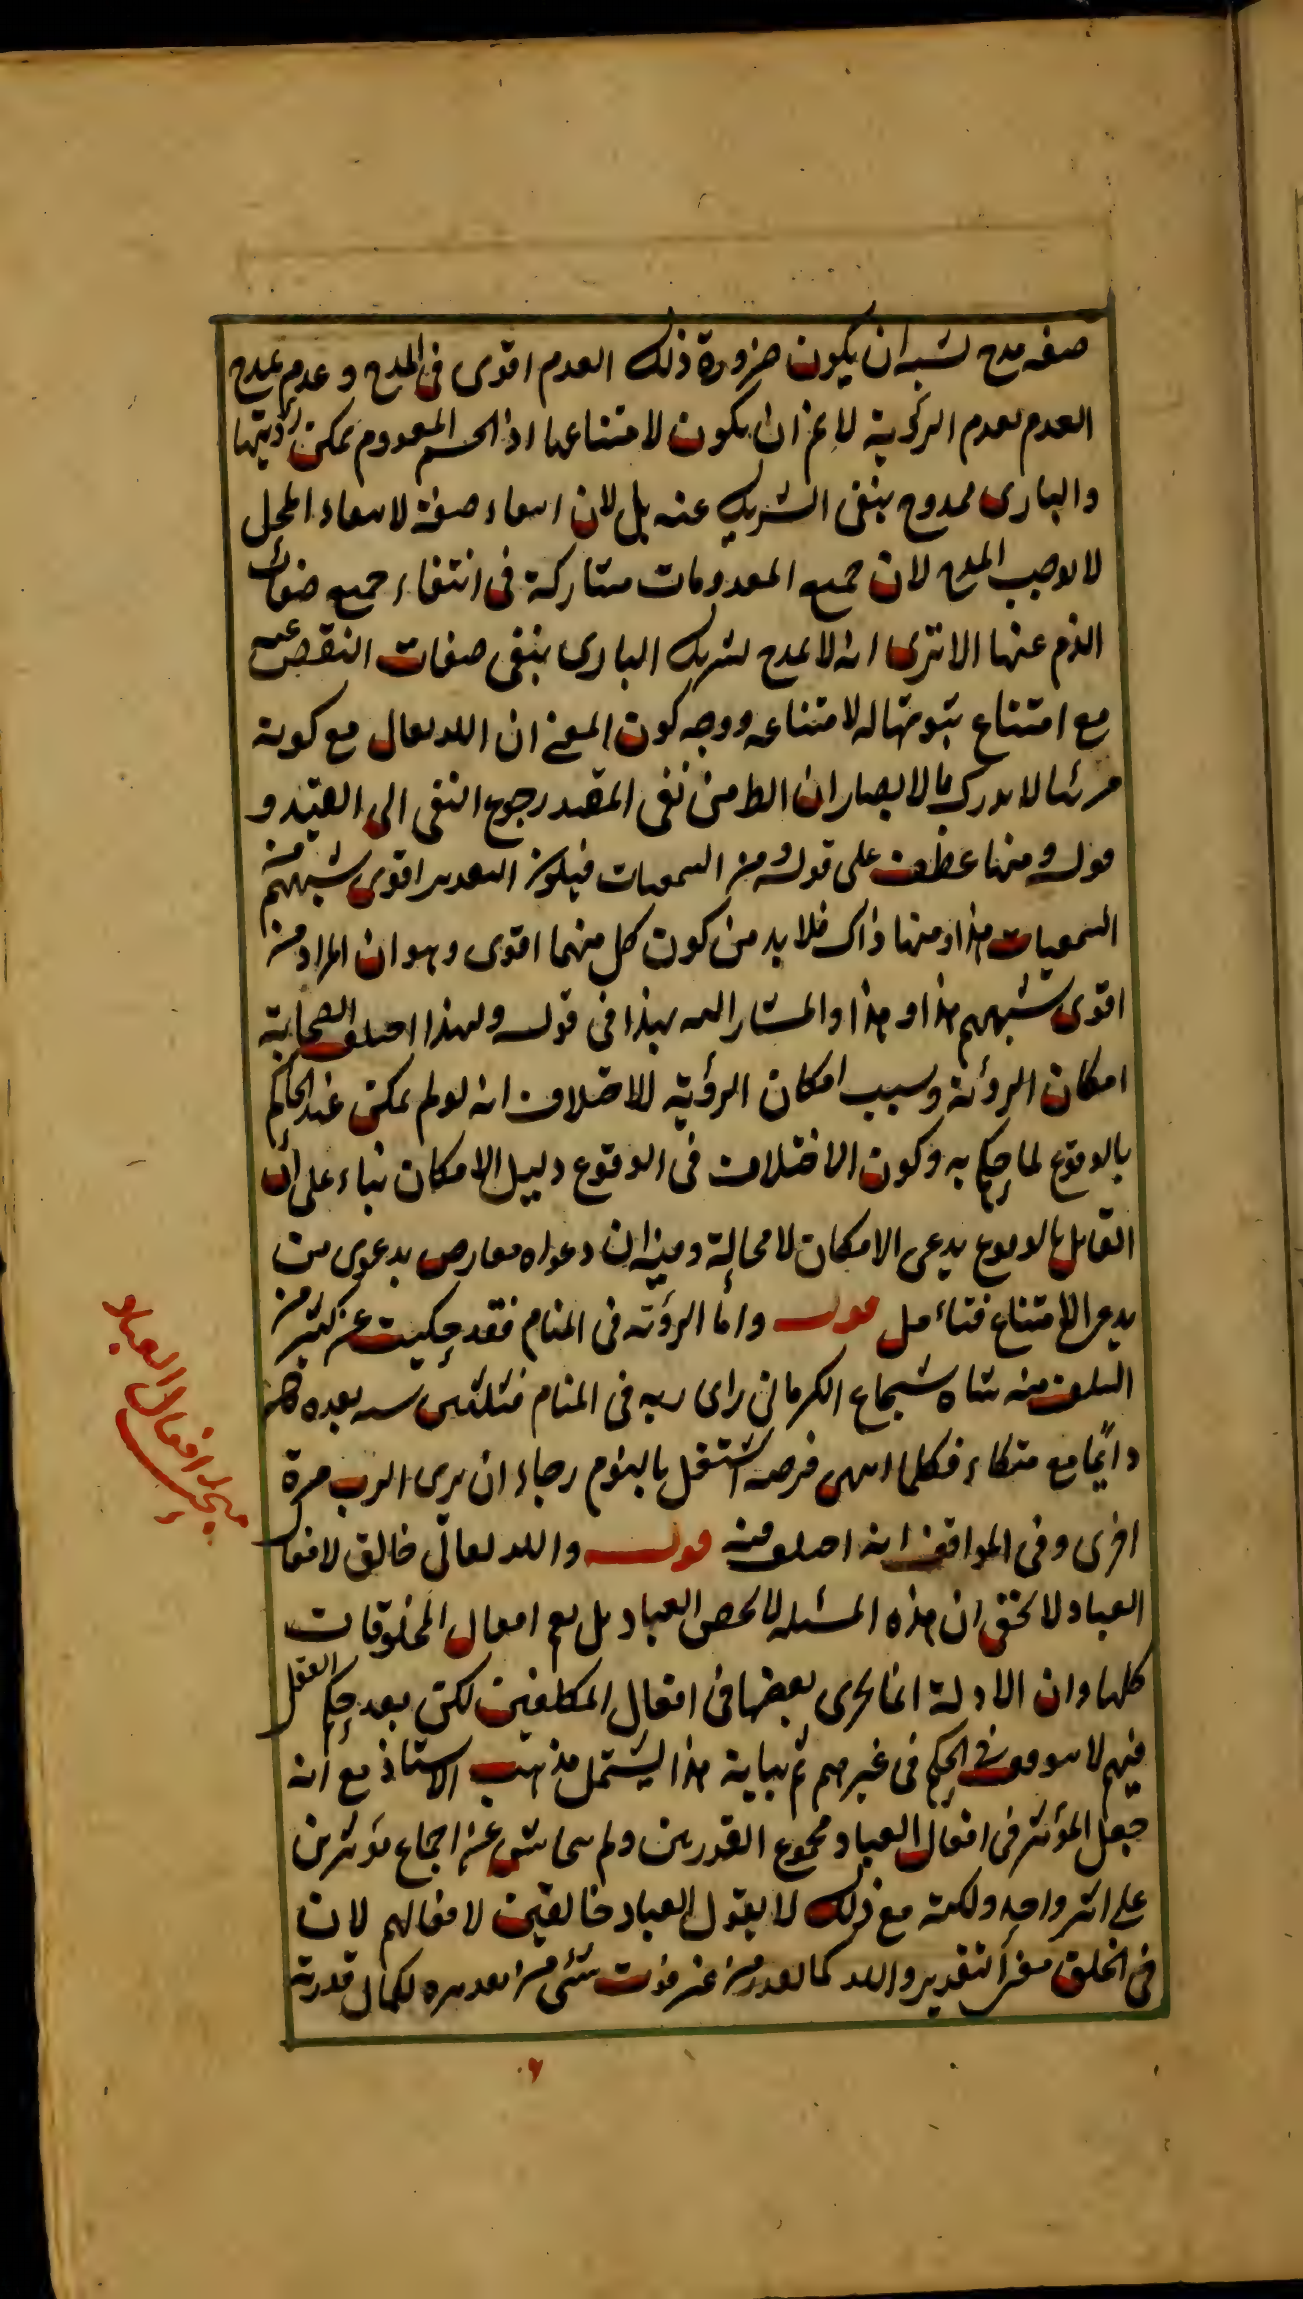 صفه مدح لشبه ان يكون ضرورة ذلك العدم اقوى فى المدح و عدم تمدح
العدم بعدم الرؤية لا يلزم ان يكون لامتناعها اذ الجسم المعدوم يمكن رؤيتها
والبارى ممدوح بنفى الشريك عنه بل لان انتفاء صفة لانتفاء المحل
لا يوجب المدح لان جميع المعدومات مشاركة فى انتفاء جميع صفات
الذم عنها الا ترى انه لا يمدح شريك البارى بنفى صفات النقص عنه
مع امتناع ثبوتها له لامتناعه ووجه كون المعنى ان الله تعالى مع كونه
مرئيا لا يدرك بالابصار ان الظ من نفى المقيد رجوع النفى الى القيد و
قوله ومنها عطف على قوله ومن السمعيات فيكون التقدير اقوى شبههم من
السمعيات هذا ومنها ذاك فلا بد من كون كل منهما اقوى وهو ان المراد من
اقوى شبههم هذا وهذا والمشار اليه بهذا فى قوله ولهذا اختلف الصحابة
امكان الرؤية وسبب امكان الرؤية للاختلاف انه لو لم يمكن عند الحاكم
بالوقوع لما حكم به وكون الاختلاف فى الوقوع دليل الامكان بناء على ان
القايل بالوقوع يدعى الامكان لا محالة وفيه ان دعواه معارض بدعوى من
يدعى الامتناع فتأمل قوله واما الرؤية فى المنام فقد حكيت عن كثير من
السلف منه شاه شجاع الكرمانى راى ربه فى المنام فثلثين سنه بعده
دائما مع متكاء فكلما فرصه اشتغل بالنوم رجاء ان يرى الرب مرة
اخرى وفى المواقف انه اختلف فيه قوله والله تعالى خالق لافعال
العباد لا يخفى ان هذه المسئله لا تخص العباد بل يعم افعال المخلوقات
كلها وان الادلة انما يجرى بعضها فى افعال المكلفين لكن بعد حكم العقل
فيهم لا يتوقف فى الحكم فى غيرهم ثم بيانه هذا يشتمل مذهب الاستاذ مع انه
جعل المؤثر فى افعال العباد مجموع القدرتين ولم يتحاش عن اجماع مؤثرين
على اثر واحد ولكنه مع ذلك لا يقول العباد خالقين لافعالهم لان
فى الخلق معنى التقدير والله كما لقدر من غير فوت شئ من تقديره لكمال قدرته
بحث افعال العباد